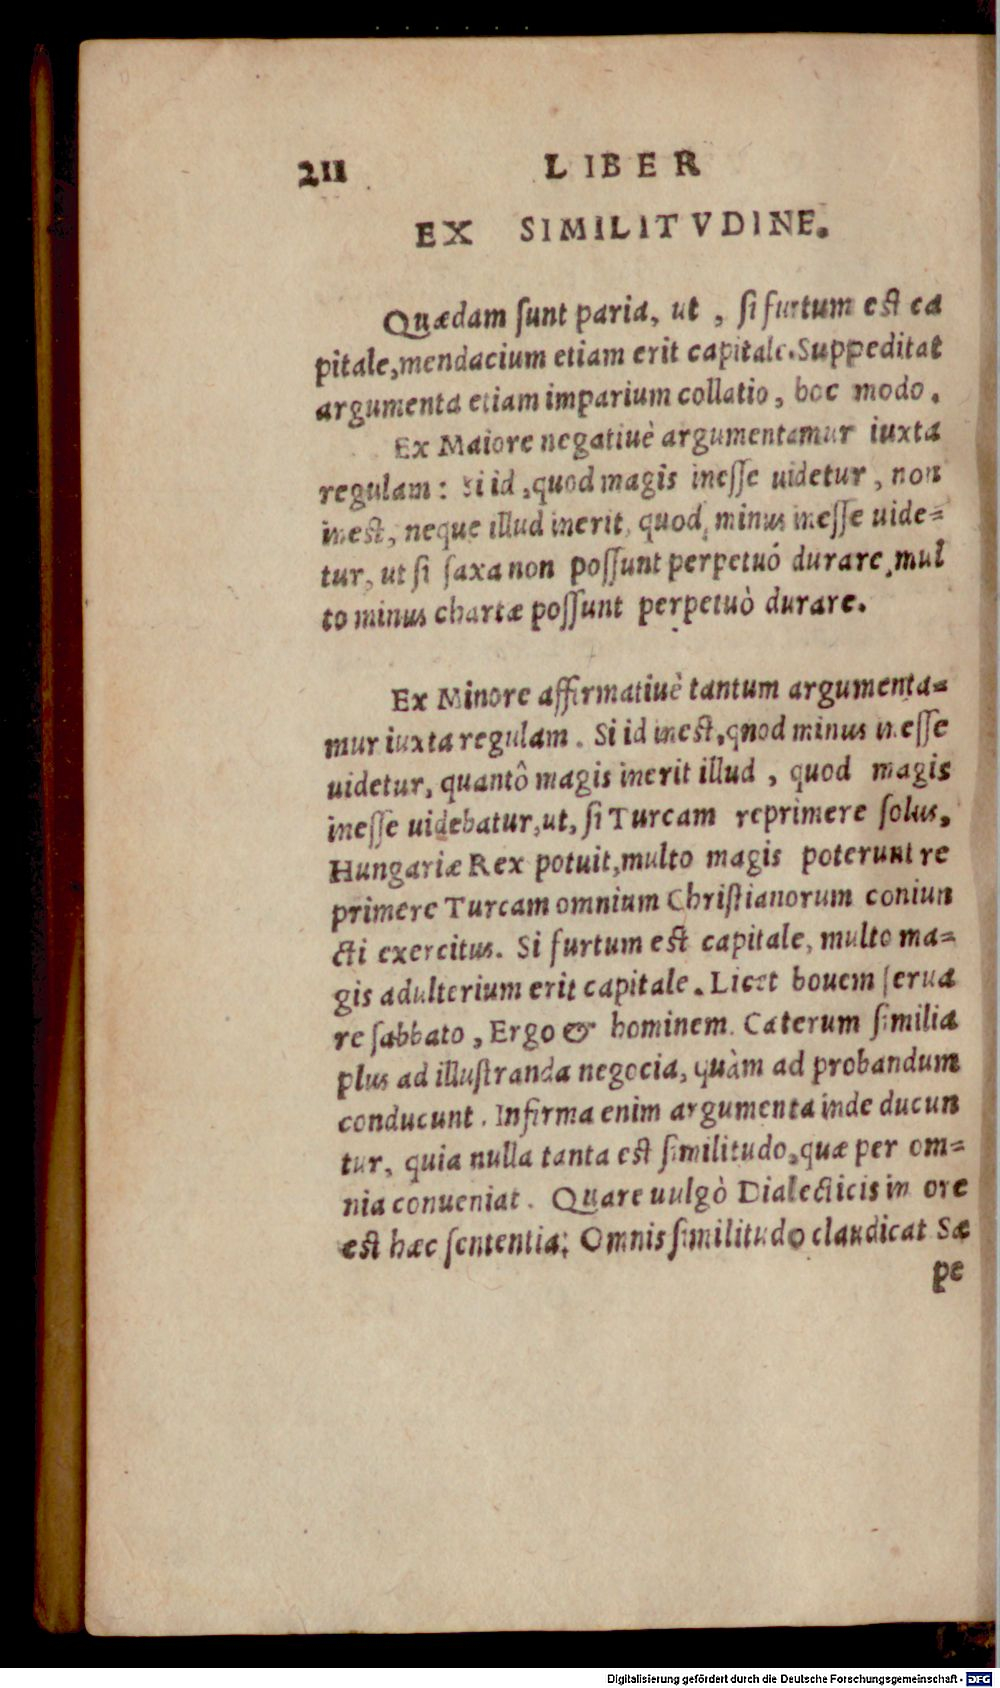 211 LIBER
EX SIMILITVDINE.
Quædam ſunt paria, ut , ſi furtum eſt ca
pitale,mendacium etiam erit capitale.Suppeditat
argumenta etiam imparium collatio, hoc modo.
Ex Maiore negatiuè argumentamur iuxta
regulam: Si id ,quod magis ineſſe uidetur, non
ineſt, neque illud inerit, quod, minus ineſſe uide=
tur, ut ſi ſaxa non poſſunt perpetuó durare,mul
to minus chartæ poſſunt perpetuò durare.
Ex Minore affirmatiuè tantum argumenta=
mur iuxta regulam. Si id ineſt,qnod minus ineſſe
uidetur, quantô magis inerit illud , quod magis
ineſſe uidebatur,ut, ſi Turcam reprimere ſolus,
Hungariæ Rex potuit,multo magis poterunt re
primere Turcam omnium Chriſtianorum coniun
cti exercitus. Si furtum eſt capitale, multo ma=
gis adulterium erit capitale. Licet bouem ſerua
re ſabbato, Ergo & hominem. Cæterum ſimilia
plus ad illuſtranda negocia, quàm ad probandum
conducunt. Infirma enim argumenta inde ducun
tur, quia nulla tanta eſt ſimilitudo,quæ per om=
nia conueniat. Quare uulgò Dialecticis in ore
eſt hæc ſententia: Omnis ſimilitudo claudicat Sæ
pe
Digitalisierung gefördert durch die Deutsche Forschungsgemeinschaft - DFG